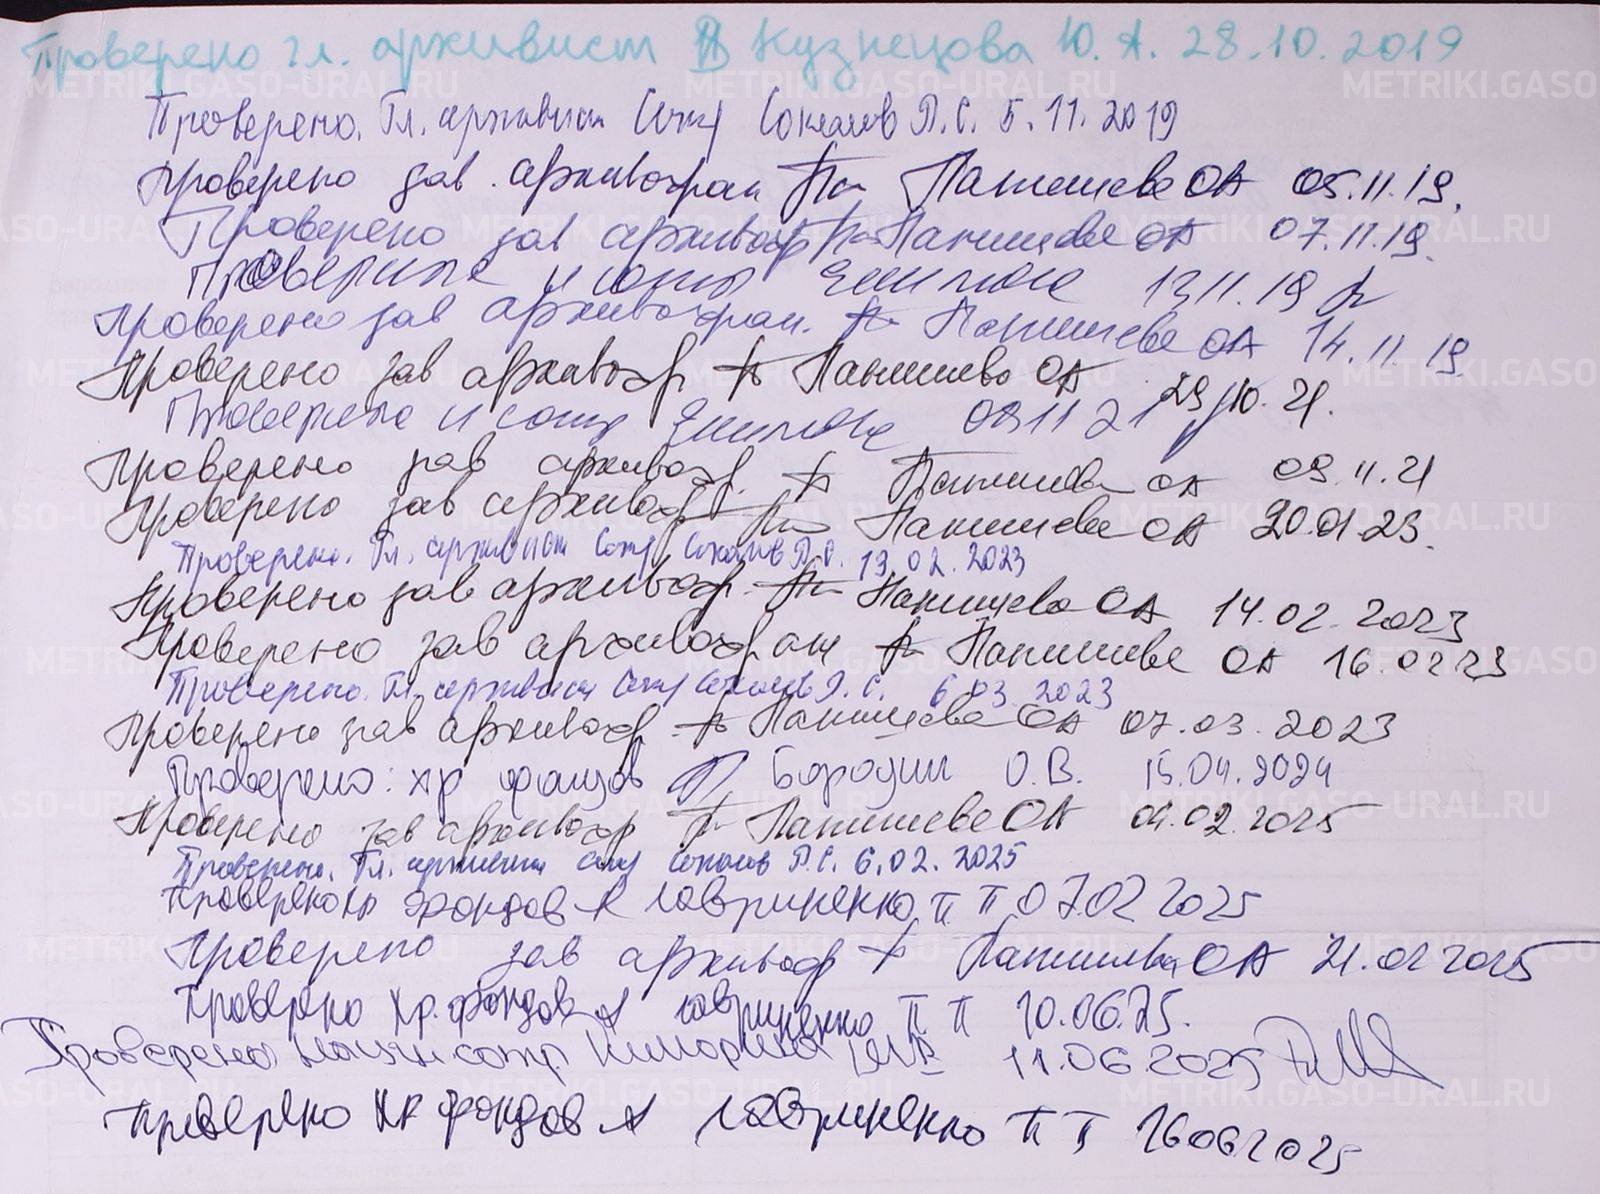 Проверено гл. архивист Кузнецова Ю. А. 28.10.2019
Проверено. Гл. архивист Соколов П. С. 5.11.2019
Проверено зав архивохран Паншева ОА 05.11.19.
Проверено зав архивохр Паншева ОА 07.11.19.
Проверила 13 11.19
Проверено зав архивохран. Паншева ОА 14.11.19.
Проверено зав архивохр Паншева ОА 29.10.21.
Проверила 09 11 21
Проверено зав архивохр. Паншева ОА 09.11.21
Проверено зав архивохр Паншева ОА 20.01.23.
Проверено. Гл. архивист Соколов П. С. 13.02.2023
Проверено зав архивохр. Паншева ОА 14.02.2023
Проверено зав архивохран Паншева ОА 16.02 23
Проверено. Гл. архивист Соколов П. С. 6.03.2023
Проверено зав архивохр Паншева ОА 07.03.2023
Проверено: хр фондов Бородин О.В. 15.04.2024
Проверено зав архивохр Паншева ОА 04.02.2025
Проверено. Гл. архивист Соколов П.С. 6.02.2025
Проверено хр фондов Гавриненко П П 07.02 2025
Проверено зав архивохр Паншева ОА 21.02 2025
Проверено хр. фондов Гавриненко П П 10.06.25.
Проверено сотр. 11.06 2025
Проверено хр фондов Гавриненко П П 16 06 2025
METRIKI.GASO-URAL.RU